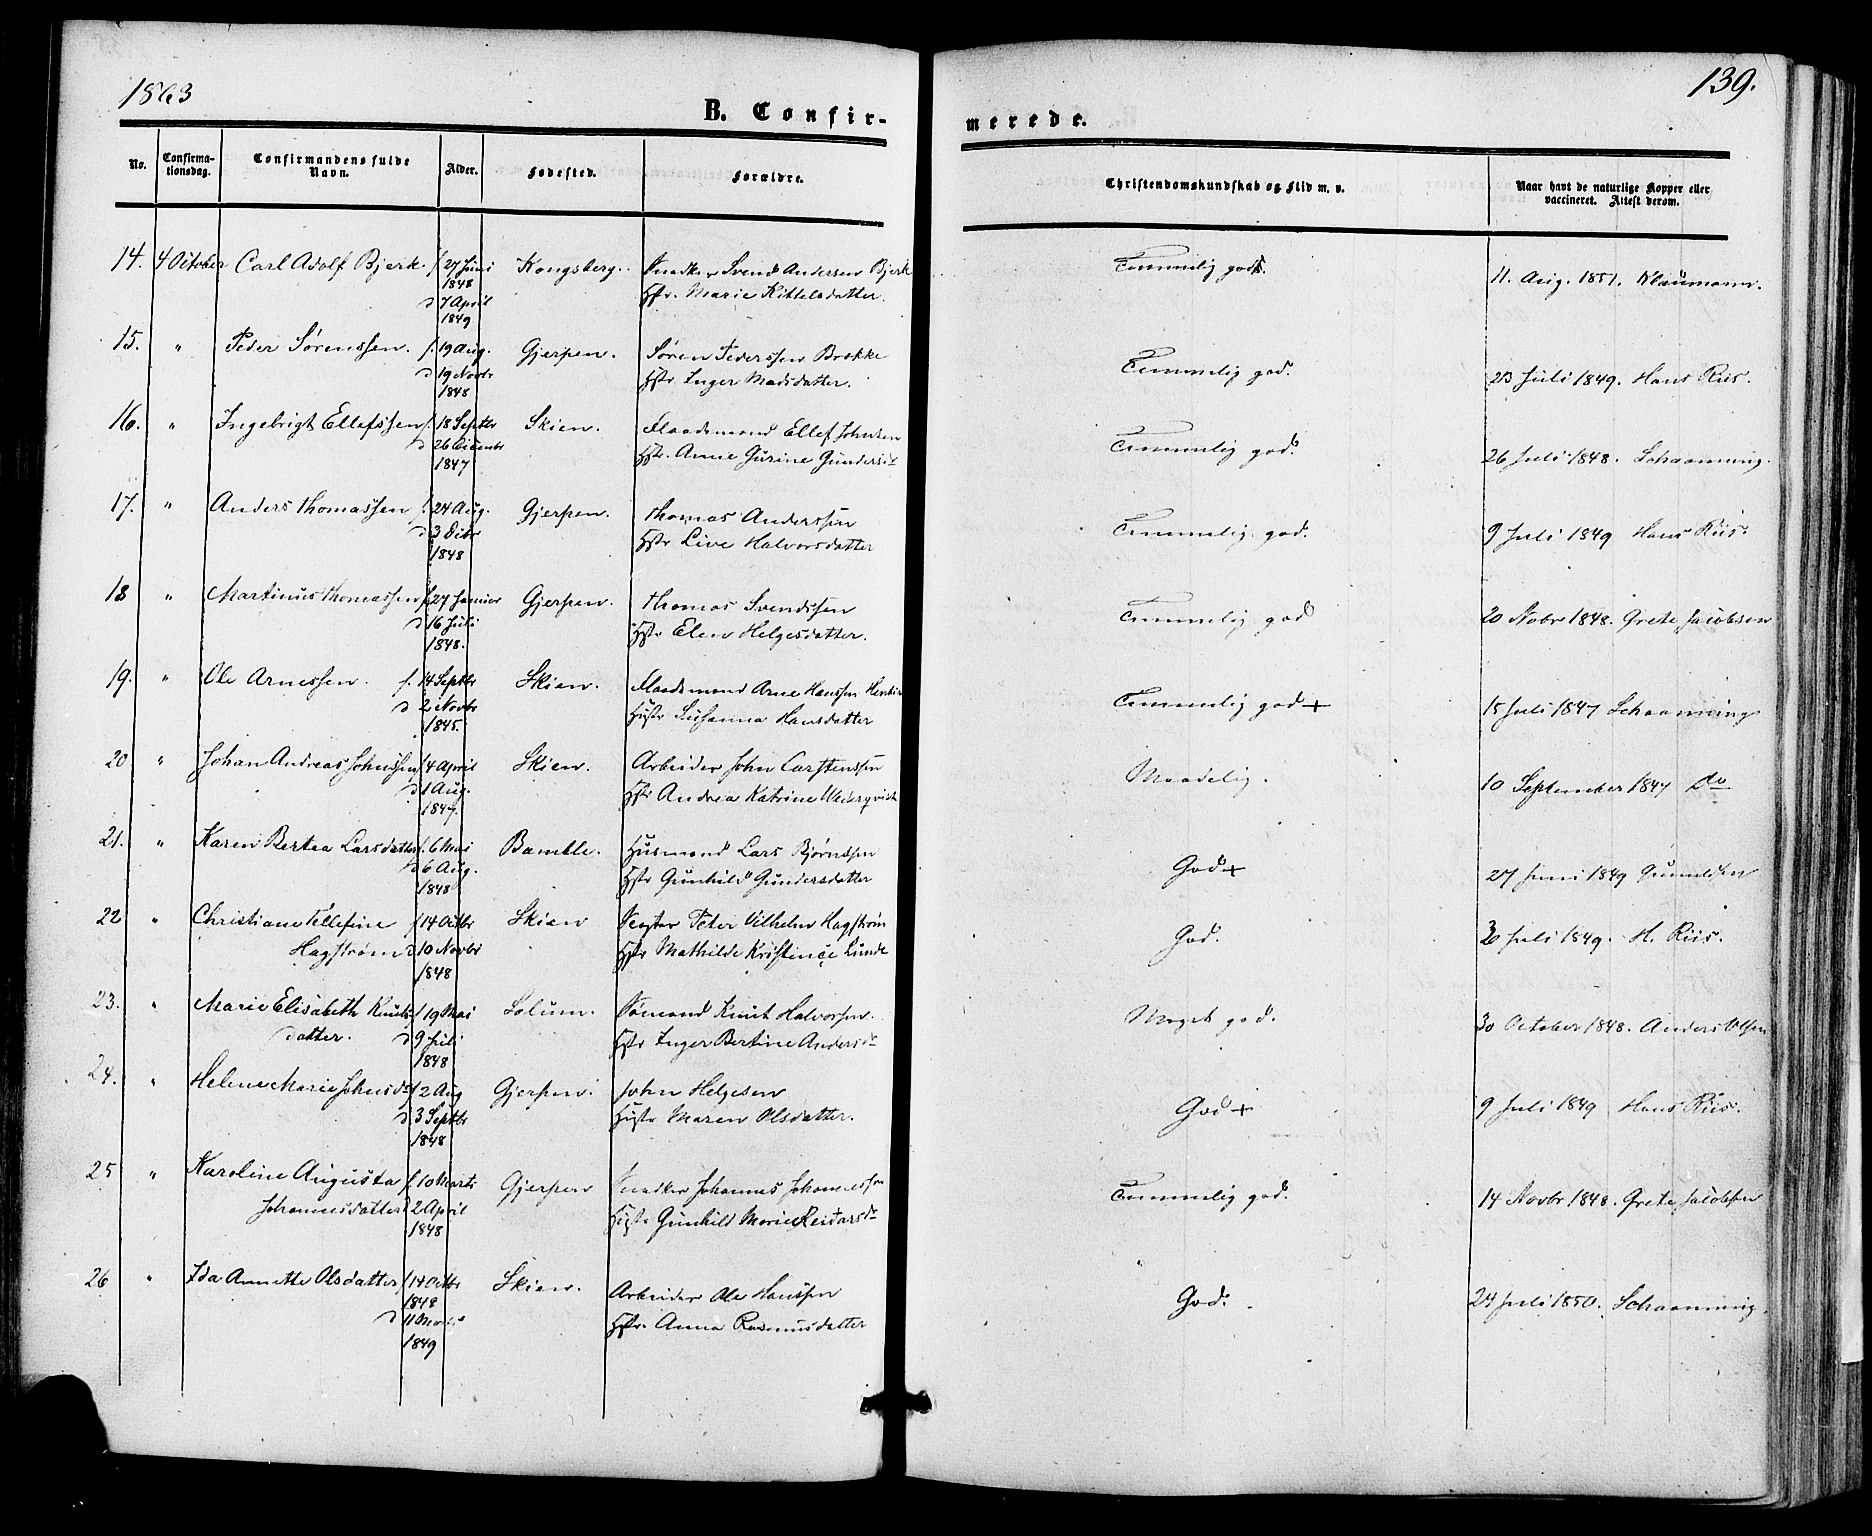 1863
139.
B. Confir-
merede.
No.
Confirma-
tionsdag.
Confirmandens fulde
Navn.
Alder.
Fødested.
Forældre.
Christendomskundskab og Flid m. v.
Naar havt de naturlige Kopper eller
vaccineret. Attest derom.
14. 4 October Carl Adolf Bjerk f. 27 Juni Kongsberg. Snedker Svend Andersen Bjerk Temmelig god. 11. Aug. 1851. Klaumann.
1848 Hstr. Marie Kittelsdatter.
d 7 April
1849
15. " Peder Sørenssen. f. 19 Aug. Gjerpen. Søren Pederssen Brække Temmelig god. 23 Juli 1849. Hans Riis.
d 19 Novbr Hstr Inger Madsdatter.
1848
16. " Ingebrigt Ellefssen f. 18 Septbr Skien. Flaadmand Ellef Johnsen Temmelig god. 26 Juli 1848. Schaanning.
d 26 Hstr. Anne Gurine
1847
17. " Anders Thomassen f. 24 Aug. Gjerpen. Thomas Anderssen Temmelig god. 9 Juli 1849 Hans Riis.
d 3 Hstr Live Halvorsdatter
1848
18 " Martinus Thomassen f 27 Januar Gjerpen. Thomas Svendssen Temmelig god 20 Novbr 1848. Grete Jacobsen
d 16 Juli Hstr Elen Helgesdatter.
1848.
19. " Ole Arnessen. f. 14 Septbr Skien. Arne Hanssen Temmelig god + 15 Juli 1847 Schaanning
d 2 Novbr Hustr Susanna Hansdatter
1845.
20 " Johan Andreas Johnssen f 4 April Skien. Arbeider John Carstenssen Maadelig. 10 September 1847 do
d 1 Aug. Hstr Andrea Katrine
1847.
21. " Karen Bertea Larsdatter f. 6 Mai Bamble. Husmand Lars Bjørnssen God + 27 Juni 1849
d 6 Aug. Hstr Gunhild Gundersdatter
1848
22 " Christiane Tellefine f 14 Octbr Skien Peter Vilhelm Hagstrøm God. Juli 1849. H. Riis.
Hagstrøm d 10 Novbr Hstr Mathilde Kristence Lunde
1848
23. " Marie Elisabeth Knuds- f 19 Mai Solum. Sømand Knut Halvorsen. Meget god. 30 October 1848. Anders Olsen
datter. d 9 Juli Hstr Inger Bertine Andersd
1848
24. " Helene Marie Johnsd f 2 Aug Gjerpen. John Helgesen God + 9 Juli 1849 Hans Riis.
d 3 Septbr Hustr Maren Olsdatter.
1848
25 " Karoline Augusta f. 10 Marts Gjerpen Snedker Johannes Johannessen Temmelig god. 14 Novbr 1848. Grete Jacobsen
Johannesdatter d 2 April Hustr Gunhild Marie Reidarsd
1848
26 " Ida Annette Olsdatter f 14 Octbr Skien. Arbeider Ole Hanssen God. 24 Juli 1850. Schaanning.
1848 Hstr. Anna Rasmusdatter
d 11 Marts
1849